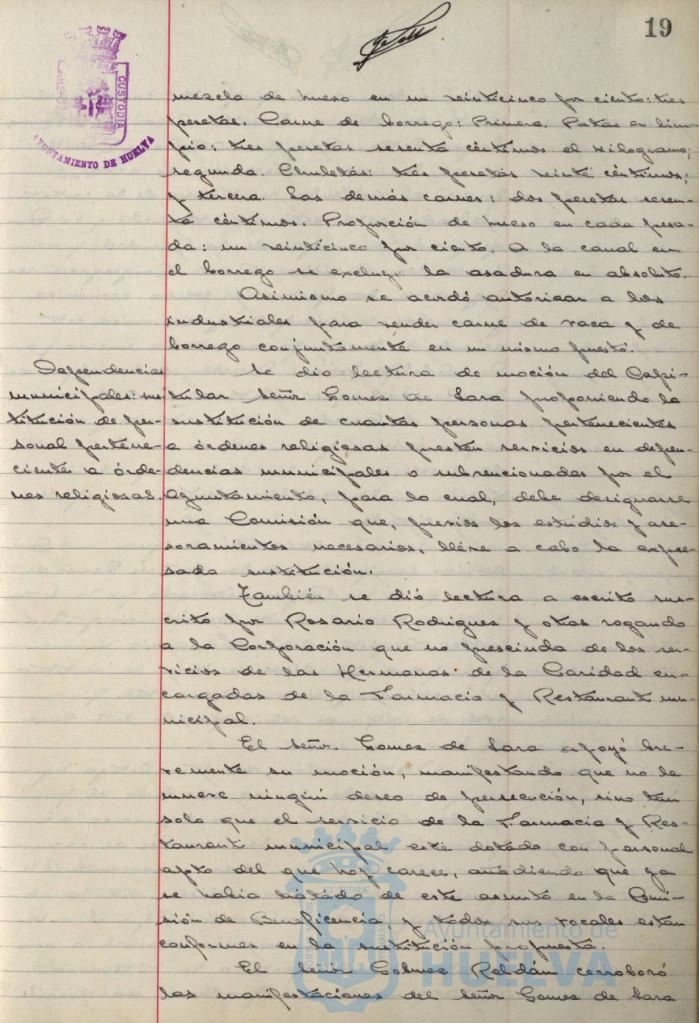 19
CUSTODIA
AYUNTAMIENTO DE HUELVA
mezcla de hueso en un veinticinco por ciento: tres
pesetas. Carne de borrego: Primera. Patas en lim-
pio: tres pesetas sesenta céntimos el kilogramo;
segunda. Chuletas: tres pesetas veinte céntimos;
y tercera. Las demás carnes: dos pesetas sesen-
ta céntimos. Proporción de hueso en cada pesa-
da: un veinticinco por ciento. A la canal en
el borrego se excluye la asadura en absoluto.
Asimismo se acordó autorizar a los
industriales para vender carne de vaca y de
borrego conjuntamente en un mismo puesto.
Dependencias
municipales: sus
titución de per-
sonal pertene-
ciente a órde-
nes religiosas.
Se dio lectura de moción del Capi-
tular Señor Gomez de Lara proponiendo la
sustitución de cuantas personas pertenecientes
a órdenes religiosas presten servicios en depen-
dencias municipales o subvencionadas por el
Ayuntamiento, para lo cual, debe designarse
una Comisión que, previos los estudios y ase-
soramientos necesarios, lleve a cabo la expre-
sada sustitución.
También se dió lectura a escrito sus-
crito por Rosario Rodriguez y otros rogando
a la Corporación que no prescinda de los ser-
vicios de las Hermanas de la Caridad en-
cargadas de la Farmacia y Restaurant mu-
nicipal.
El Señor Gomez de Lara apoyó bre-
vemente su moción, manifestando que no le
mueve ningún deseo de persecución, sino tan
solo que el servicio de la Farmacia y Res-
taurant municipal esté dotado con personal
apto del que hoy carece, añadiendo que ya
se habia tratado de este asunto en la Comi-
sión de Beneficencia y todos sus vocales están
conformes en la sustitución propuesta.
El Señor Gomez Roldán corroboró
las manifestaciones del Señor Gomez de Lara
Ayuntamiento de
HUELVA